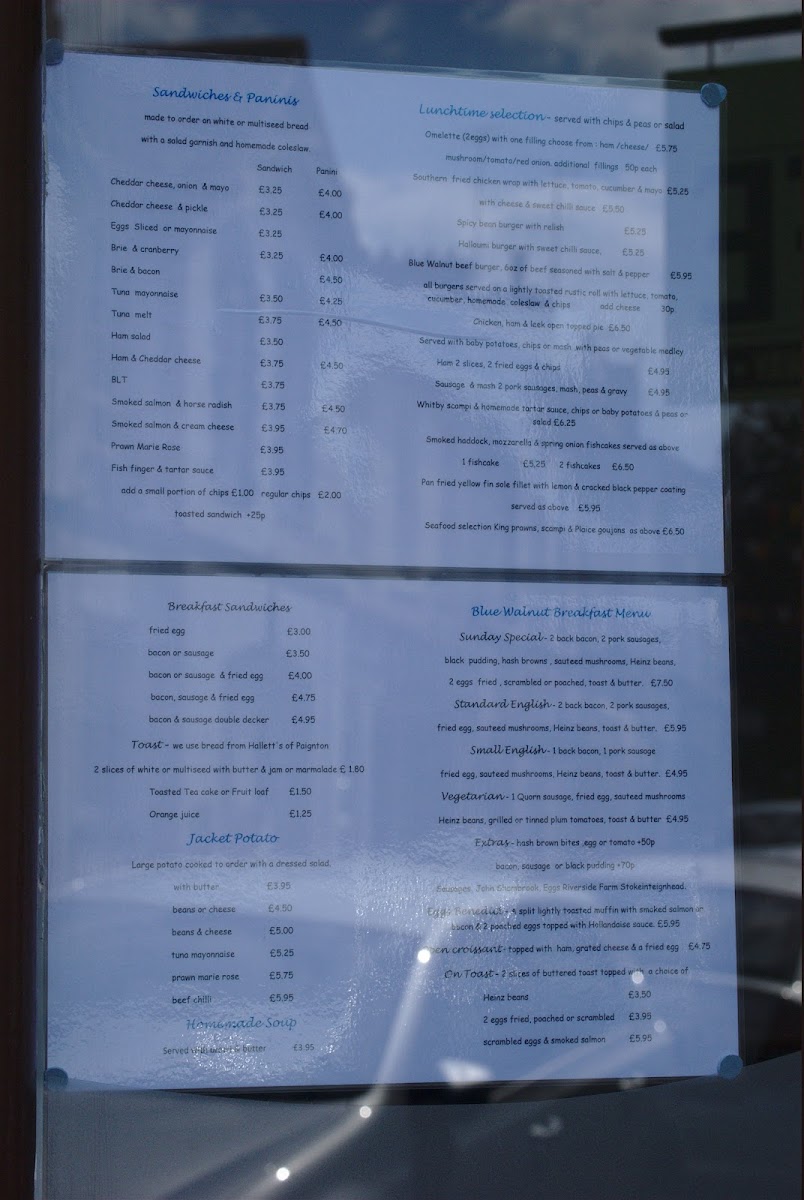 Sandwiches & Paninis
made to order on white or multiseed bread
with a salad garnish and homemade coleslaw.
Sandwich Panini
Cheddar cheese, onion & mayo £3.25 £4.00
Cheddar cheese & pickle £3.25 £4.00
Eggs Sliced or mayonnaise £3.25
Brie & cranberry £3.25 £4.00
Brie & bacon £4.50
Tuna mayonnaise £3.50 £4.25
Tuna melt £3.75 £4.50
Ham salad £3.50
Ham & Cheddar cheese £3.75 £4.50
BLT £3.75
Smoked salmon & horse radish £3.75 £4.50
Smoked salmon & cream cheese £3.95 £4.70
Prawn Marie Rose £3.95
Fish finger & tartar sauce £3.95
add a small portion of chips £1.00 regular chips £2.00
toasted sandwich +25p
Lunchtime selection - served with chips & peas or salad
Omelette (2eggs) with one filling choose from : ham /cheese/ £5.75
mushroom/tomato/red onion. additional fillings 50p each
Southern fried chicken wrap with lettuce, tomato, cucumber & mayo £5.25
with cheese & sweet chilli sauce £5.50
Spicy bean burger with relish £5.25
Halloumi burger with sweet chilli sauce, £5.25
Blue Walnut beef burger, 6oz of beef seasoned with salt & pepper £5.95
all burgers served on a lightly toasted rustic roll with lettuce, tomato,
cucumber, homemade coleslaw & chips add cheese 30p
Chicken, ham & leek open topped pie £6.50
Served with baby potatoes, chips or mash with peas or vegetable medley
Ham 2 slices, 2 fried eggs & chips £4.95
Sausage & mash 2 pork sausages, mash, peas & gravy £4.95
Whitby scampi & homemade tartar sauce, chips or baby potatoes & peas or
salad £6.25
Smoked haddock, mozzarella & spring onion fishcakes served as above
1 fishcake £5.25 2 fishcakes £6.50
Pan fried yellow fin sole fillet with lemon & cracked black pepper coating
served as above £5.95
Seafood selection King prawns, scampi & Plaice goujons as above £6.50
Breakfast Sandwiches
fried egg £3.00
bacon or sausage £3.50
bacon or sausage & fried egg £4.00
bacon, sausage & fried egg £4.75
bacon & sausage double decker £4.95
Toast - we use bread from Hallett's of Paignton
2 slices of white or multiseed with butter & jam or marmalade £ 1.80
Toasted Tea cake or Fruit loaf £1.50
Orange juice £1.25
Jacket Potato
Large potato cooked to order with a dressed salad.
with butter £3.95
beans or cheese £4.50
beans & cheese £5.00
tuna mayonnaise £5.25
prawn marie rose £5.75
beef chilli £5.95
Homemade Soup
Served with bread & butter £3.95
Blue Walnut Breakfast Menu
Sunday Special - 2 back bacon, 2 pork sausages,
black pudding, hash browns , sauteed mushrooms, Heinz beans,
2 eggs fried , scrambled or poached, toast & butter. £7.50
Standard English - 2 back bacon, 2 pork sausages,
fried egg, sauteed mushrooms, Heinz beans, toast & butter. £5.95
Small English - 1 back bacon, 1 pork sausage
fried egg, sauteed mushrooms, Heinz beans, toast & butter. £4.95
Vegetarian - 1 Quorn sausage, fried egg, sauteed mushrooms
Heinz beans, grilled or tinned plum tomatoes, toast & butter £4.95
Extras - hash brown bites ,egg or tomato +50p
bacon, sausage or black pudding +70p
Sausages, John Shambrook, Eggs Riverside Farm Stokeinteignhead.
Eggs Benedict - a split lightly toasted muffin with smoked salmon or
bacon & 2 poached eggs topped with Hollandaise sauce. £5.95
croissant - topped with ham, grated cheese & a fried egg £4.75
On Toast - 2 slices of buttered toast topped with a choice of
Heinz beans £3.50
2 eggs fried, poached or scrambled £3.95
scrambled eggs & smoked salmon £5.95